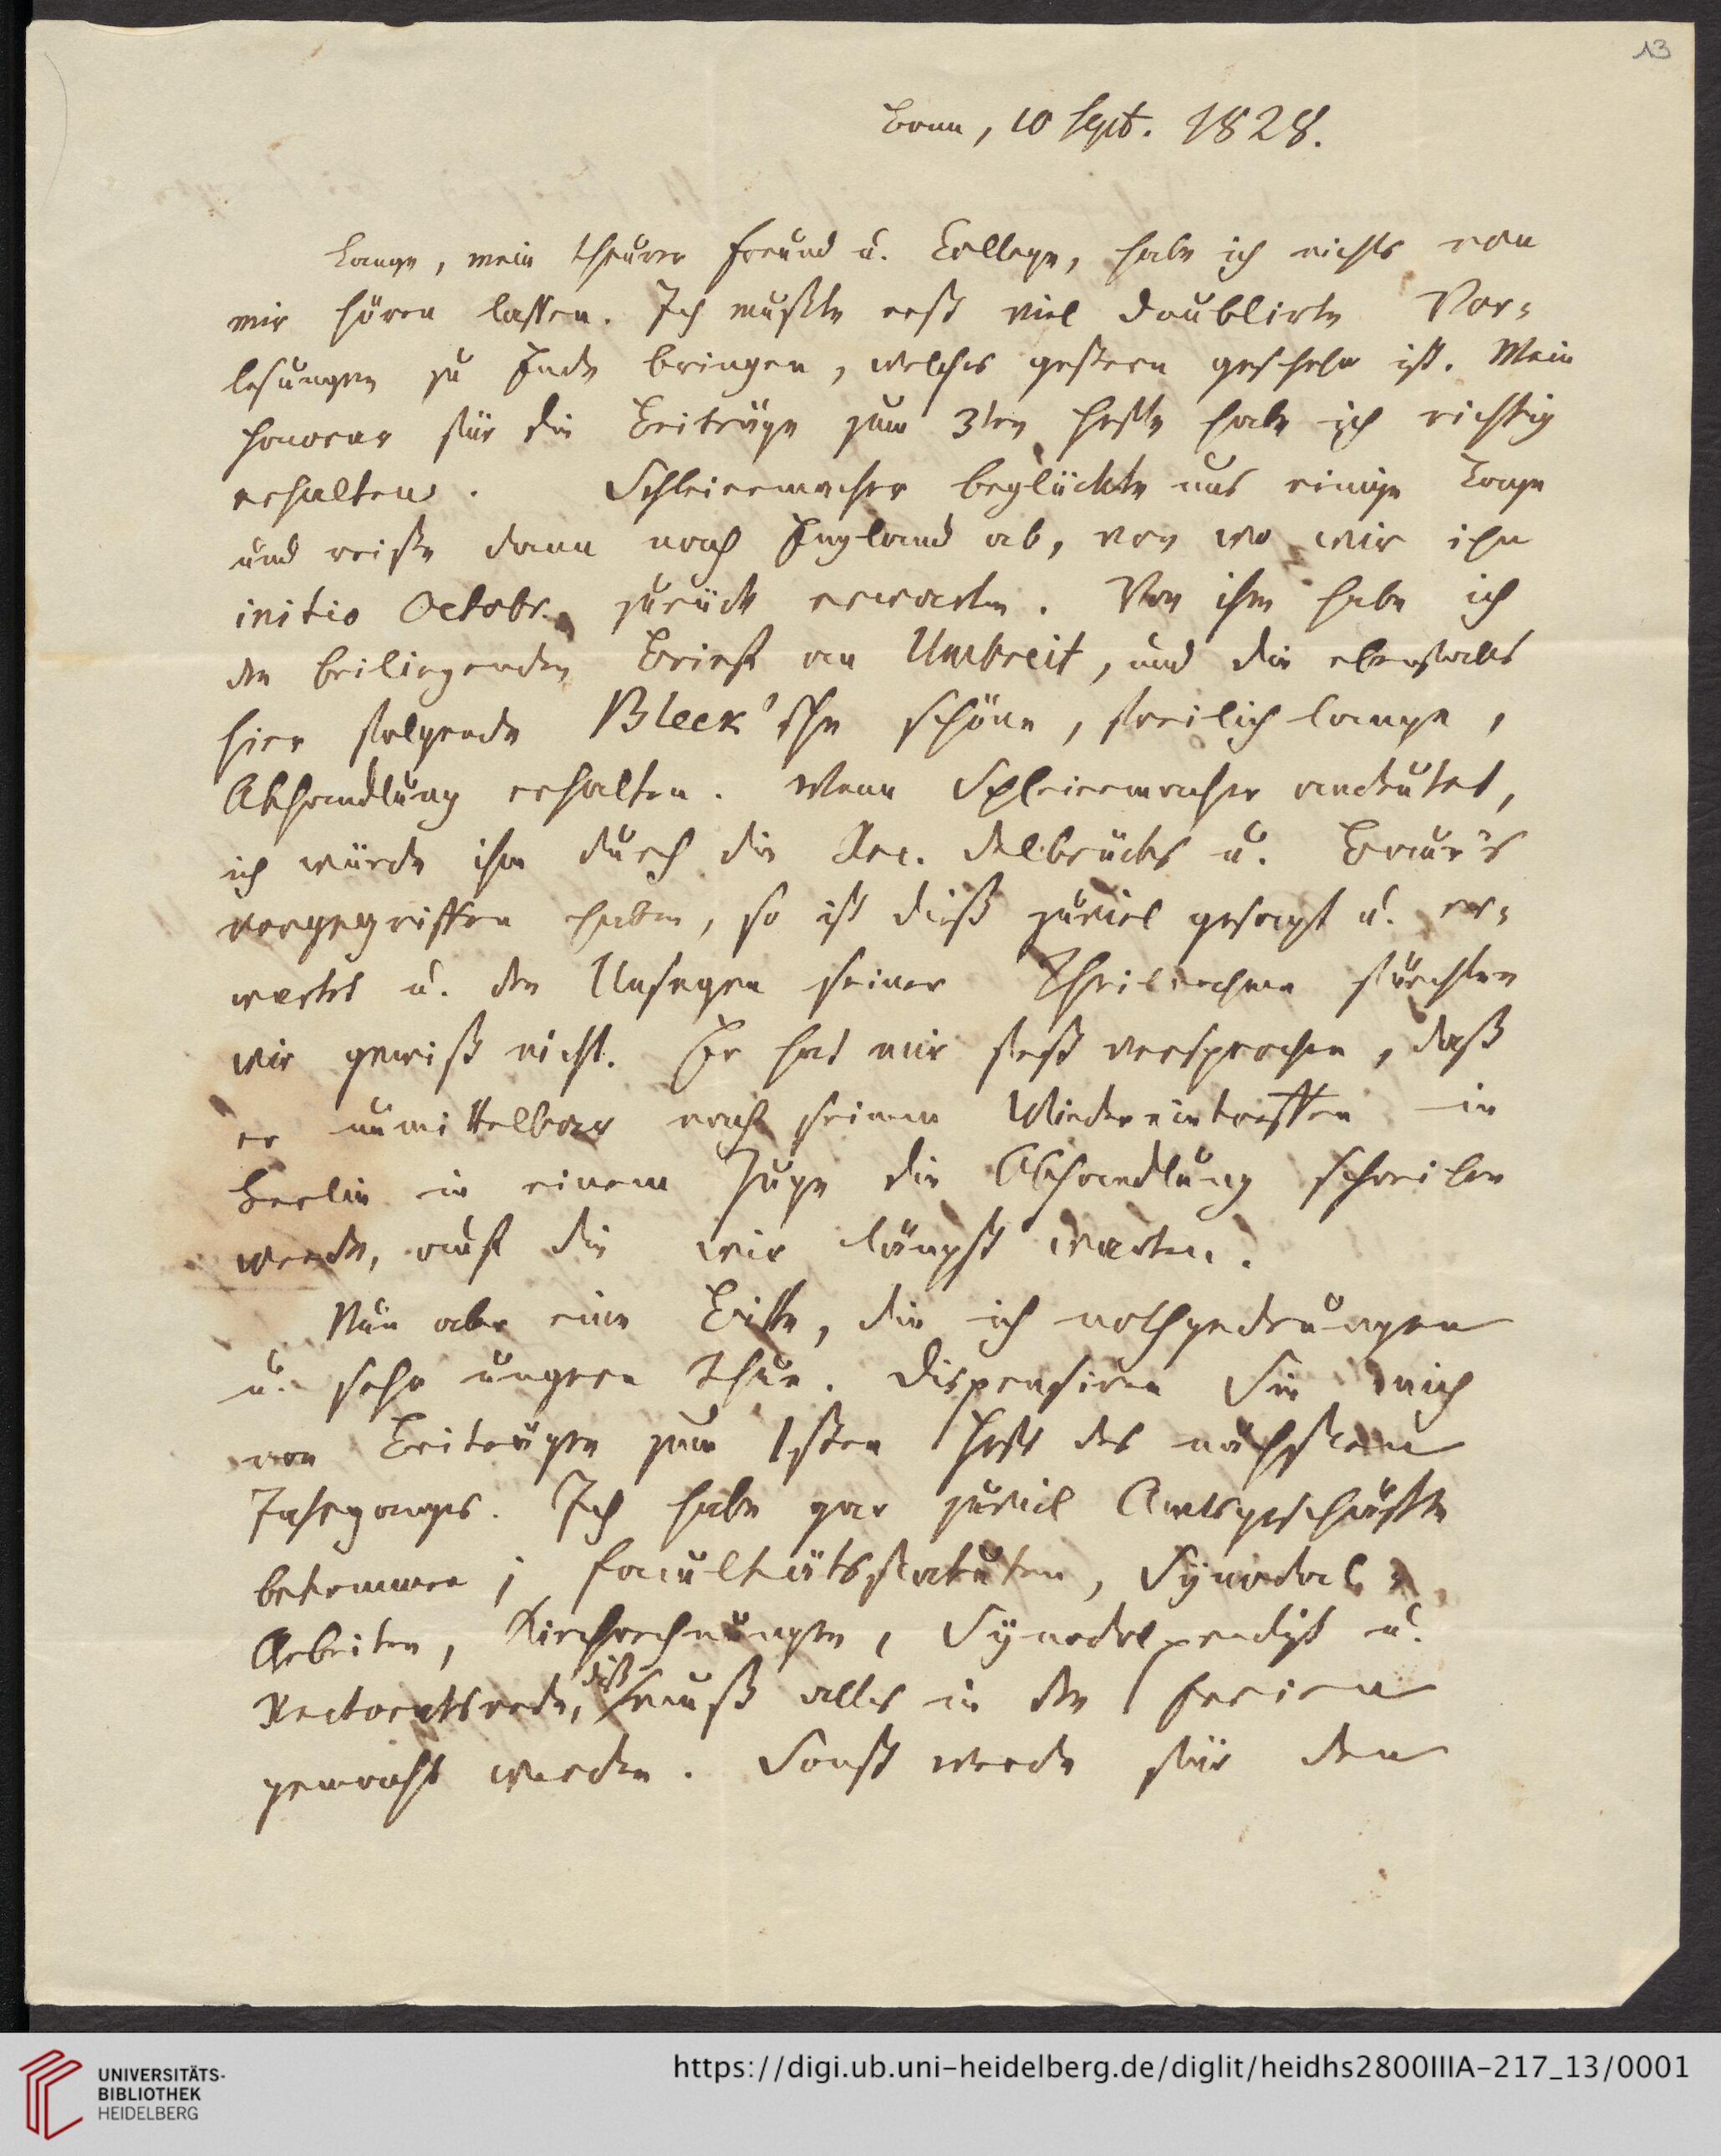 13
Bonn, 10 Sept. 1828.
Lange, mein theurer Freund u. College, habe ich nichts von
mir hören lassen. Ich mußte erst viel doublirte Vor-
lesungen zu Ende bringen, welches gestern geschehn ist. Mein
Honorar für die Beiträge zum 3ten Hefte habe ich richtig
erhalten. Schleiermacher beglückte uns einige Tage
und reiste dann nach England ab, von wo wir ihn
initio Octobr. zurück erwarten. Von ihm habe ich
den beiliegenden Brief an Umbreit, und die ebenfalls
hier folgende Bleek'sche schöne, freilich lange,
Abhandlung erhalten. Wenn Schleiermacher andeutet,
ich würde ihm durch die Rec. Delbrücks u. Baur's
vorgegriffen haben, so ist dieß zuviel gesagt u. er-
wartet u. den Unsegen seiner Theilnahme fürchten
wir gewiß nicht. Er hat mir fest versprochen, daß
er unmittelbar nach seinem Wiedereintreffen in
Berlin in einem Zuge die Abhandlung schreiben
werde, auf die wir längst warten.
Nun aber eine Bitte, die ich nothgedrungen
u. sehr ungern thue. Dispensiren Sie mich
von Beiträgen zum 1sten Heft des nächsten
Jahrganges. Ich habe gar zuviel Amtsgeschäfte
bekommen; Facultätsstatuten, Synodal-
Arbeiten, Kirchrechnungen, Synodalpredigt u.
Rectoratsrede, dieß muß alles in den Ferien
gemacht werden. Sonst werde für den
UNIVERSITÄTS-
BIBLIOTHEK
HEIDELBERG
https://digi.ub.uni-heidelberg.de/diglit/heidhs2800IIIA-217_13/0001